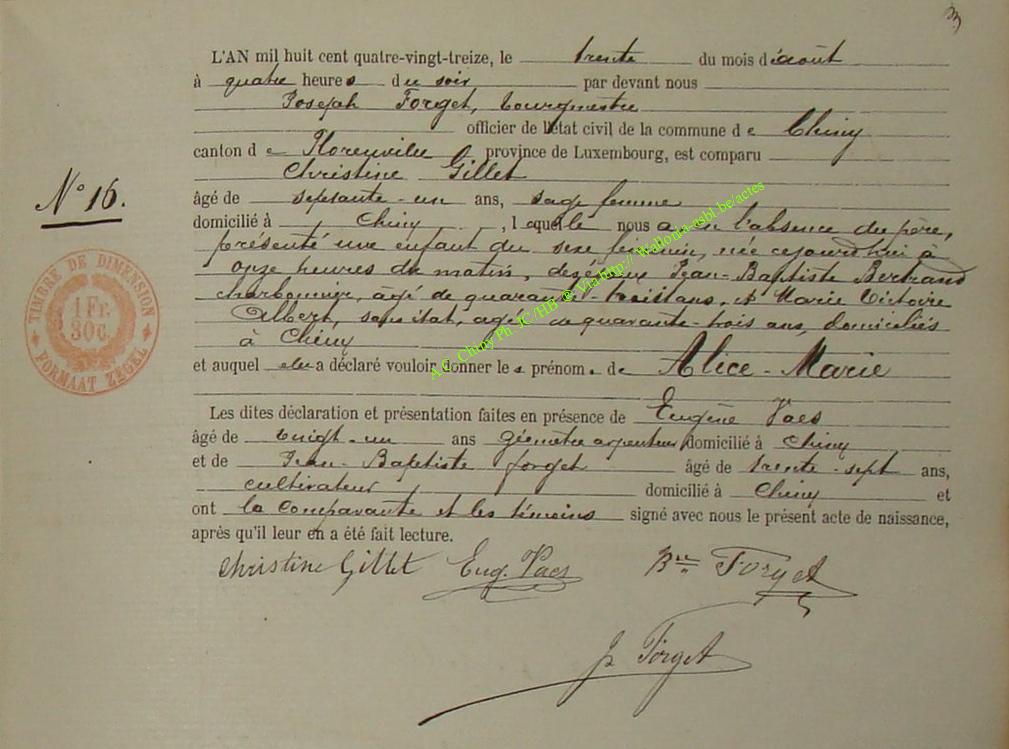 L'AN mil huit cent quatre-vingt-treize, le trente du mois d'août
à quatre heures du soir par devant nous
Joseph Forget, bourgmestre
officier de l'état civil de la commune de Chiny
canton de Florenville province de Luxembourg, est comparu
Christine Gillet
âgé de septante-un ans, sage femme
domicilié à Chiny, laquelle nous a en l'absence du père,
présenté une enfant du sexe féminin, née cejourd'hui à
onze heures du matin, de Jean-Baptiste Bertrand
charbonnier, âgé de quarante-trois ans, et Marie Victoire
Albert, sans état, âgée de quarante-trois ans, domiciliés
à Chiny
et auquel elle a déclaré vouloir donner les prénoms de Alice-Marie
Les dites déclaration et présentation faites en présence de Eugène Vaes
âgé de vingt-un ans géomètre arpenteur domicilié à Chiny
et de Jean-Baptiste Forget âgé de trente-sept ans,
cultivateur domicilié à Chiny et
ont la comparante et les témoins signé avec nous le présent acte de naissance,
après qu'il leur en a été fait lecture.
Christine Gillet Eug. Vaes Bte Forget
J. Forget
N° 16.
TIMBRE DE DIMENSION
1 Fr.
30c.
FORMAAT ZEGEL
A.C. Chiny Ph JC/HB @ Via http://Wallonia-asbl.be/actes